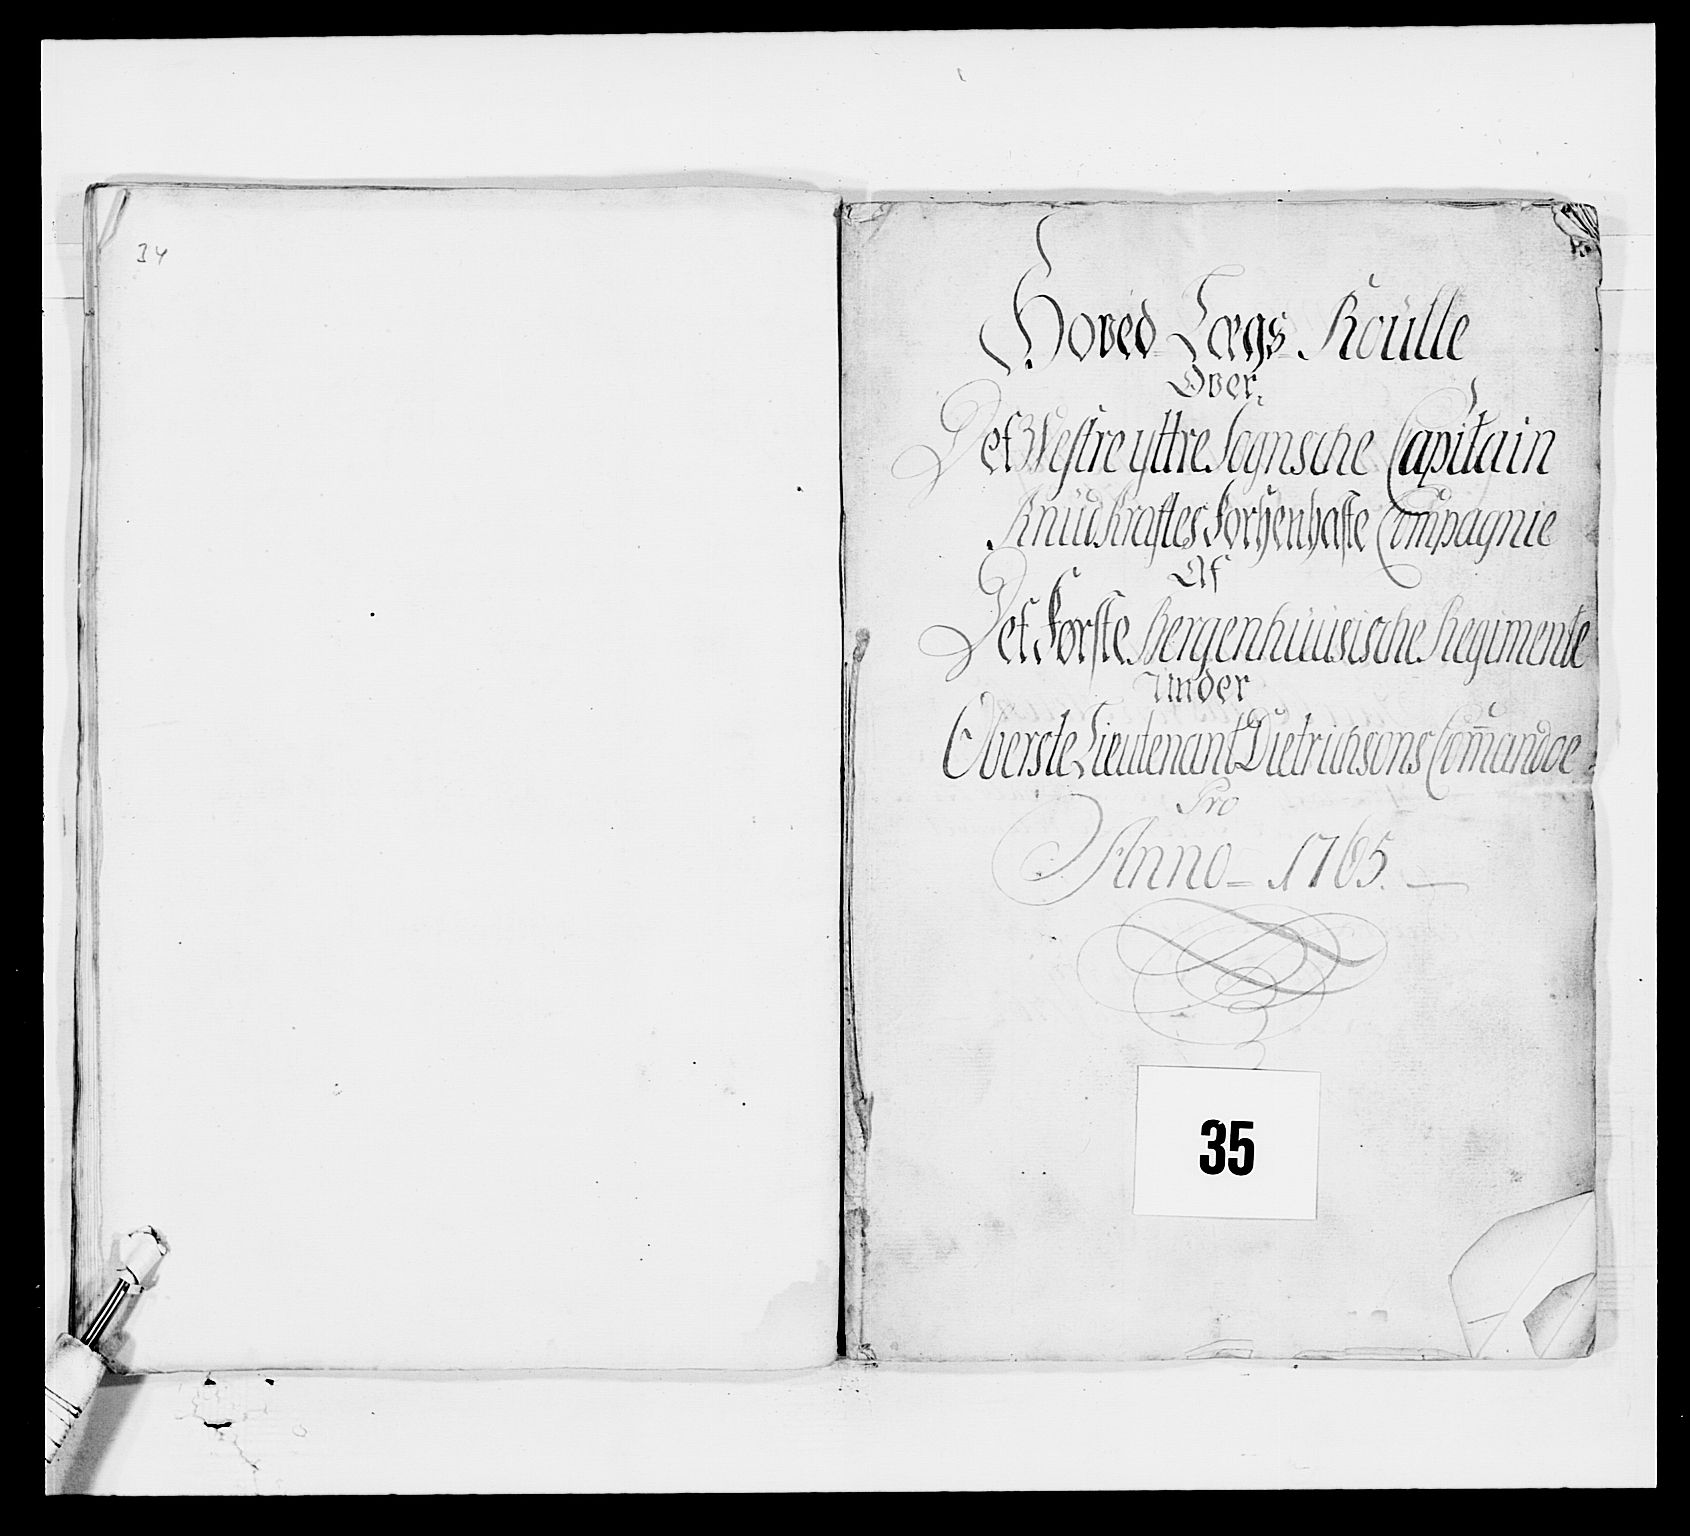 34
Hoved Lægs Roülle
Over
Det Westre yttre Sognsche Capitain
Knüd Kraftes Forhenhafte Compagnie
Af
Det Første Bergenhüüsische Regimente
Under
Oberste Lieutenant Dietrichsons Com̄andoe
Pro
Anno = 1765.
35